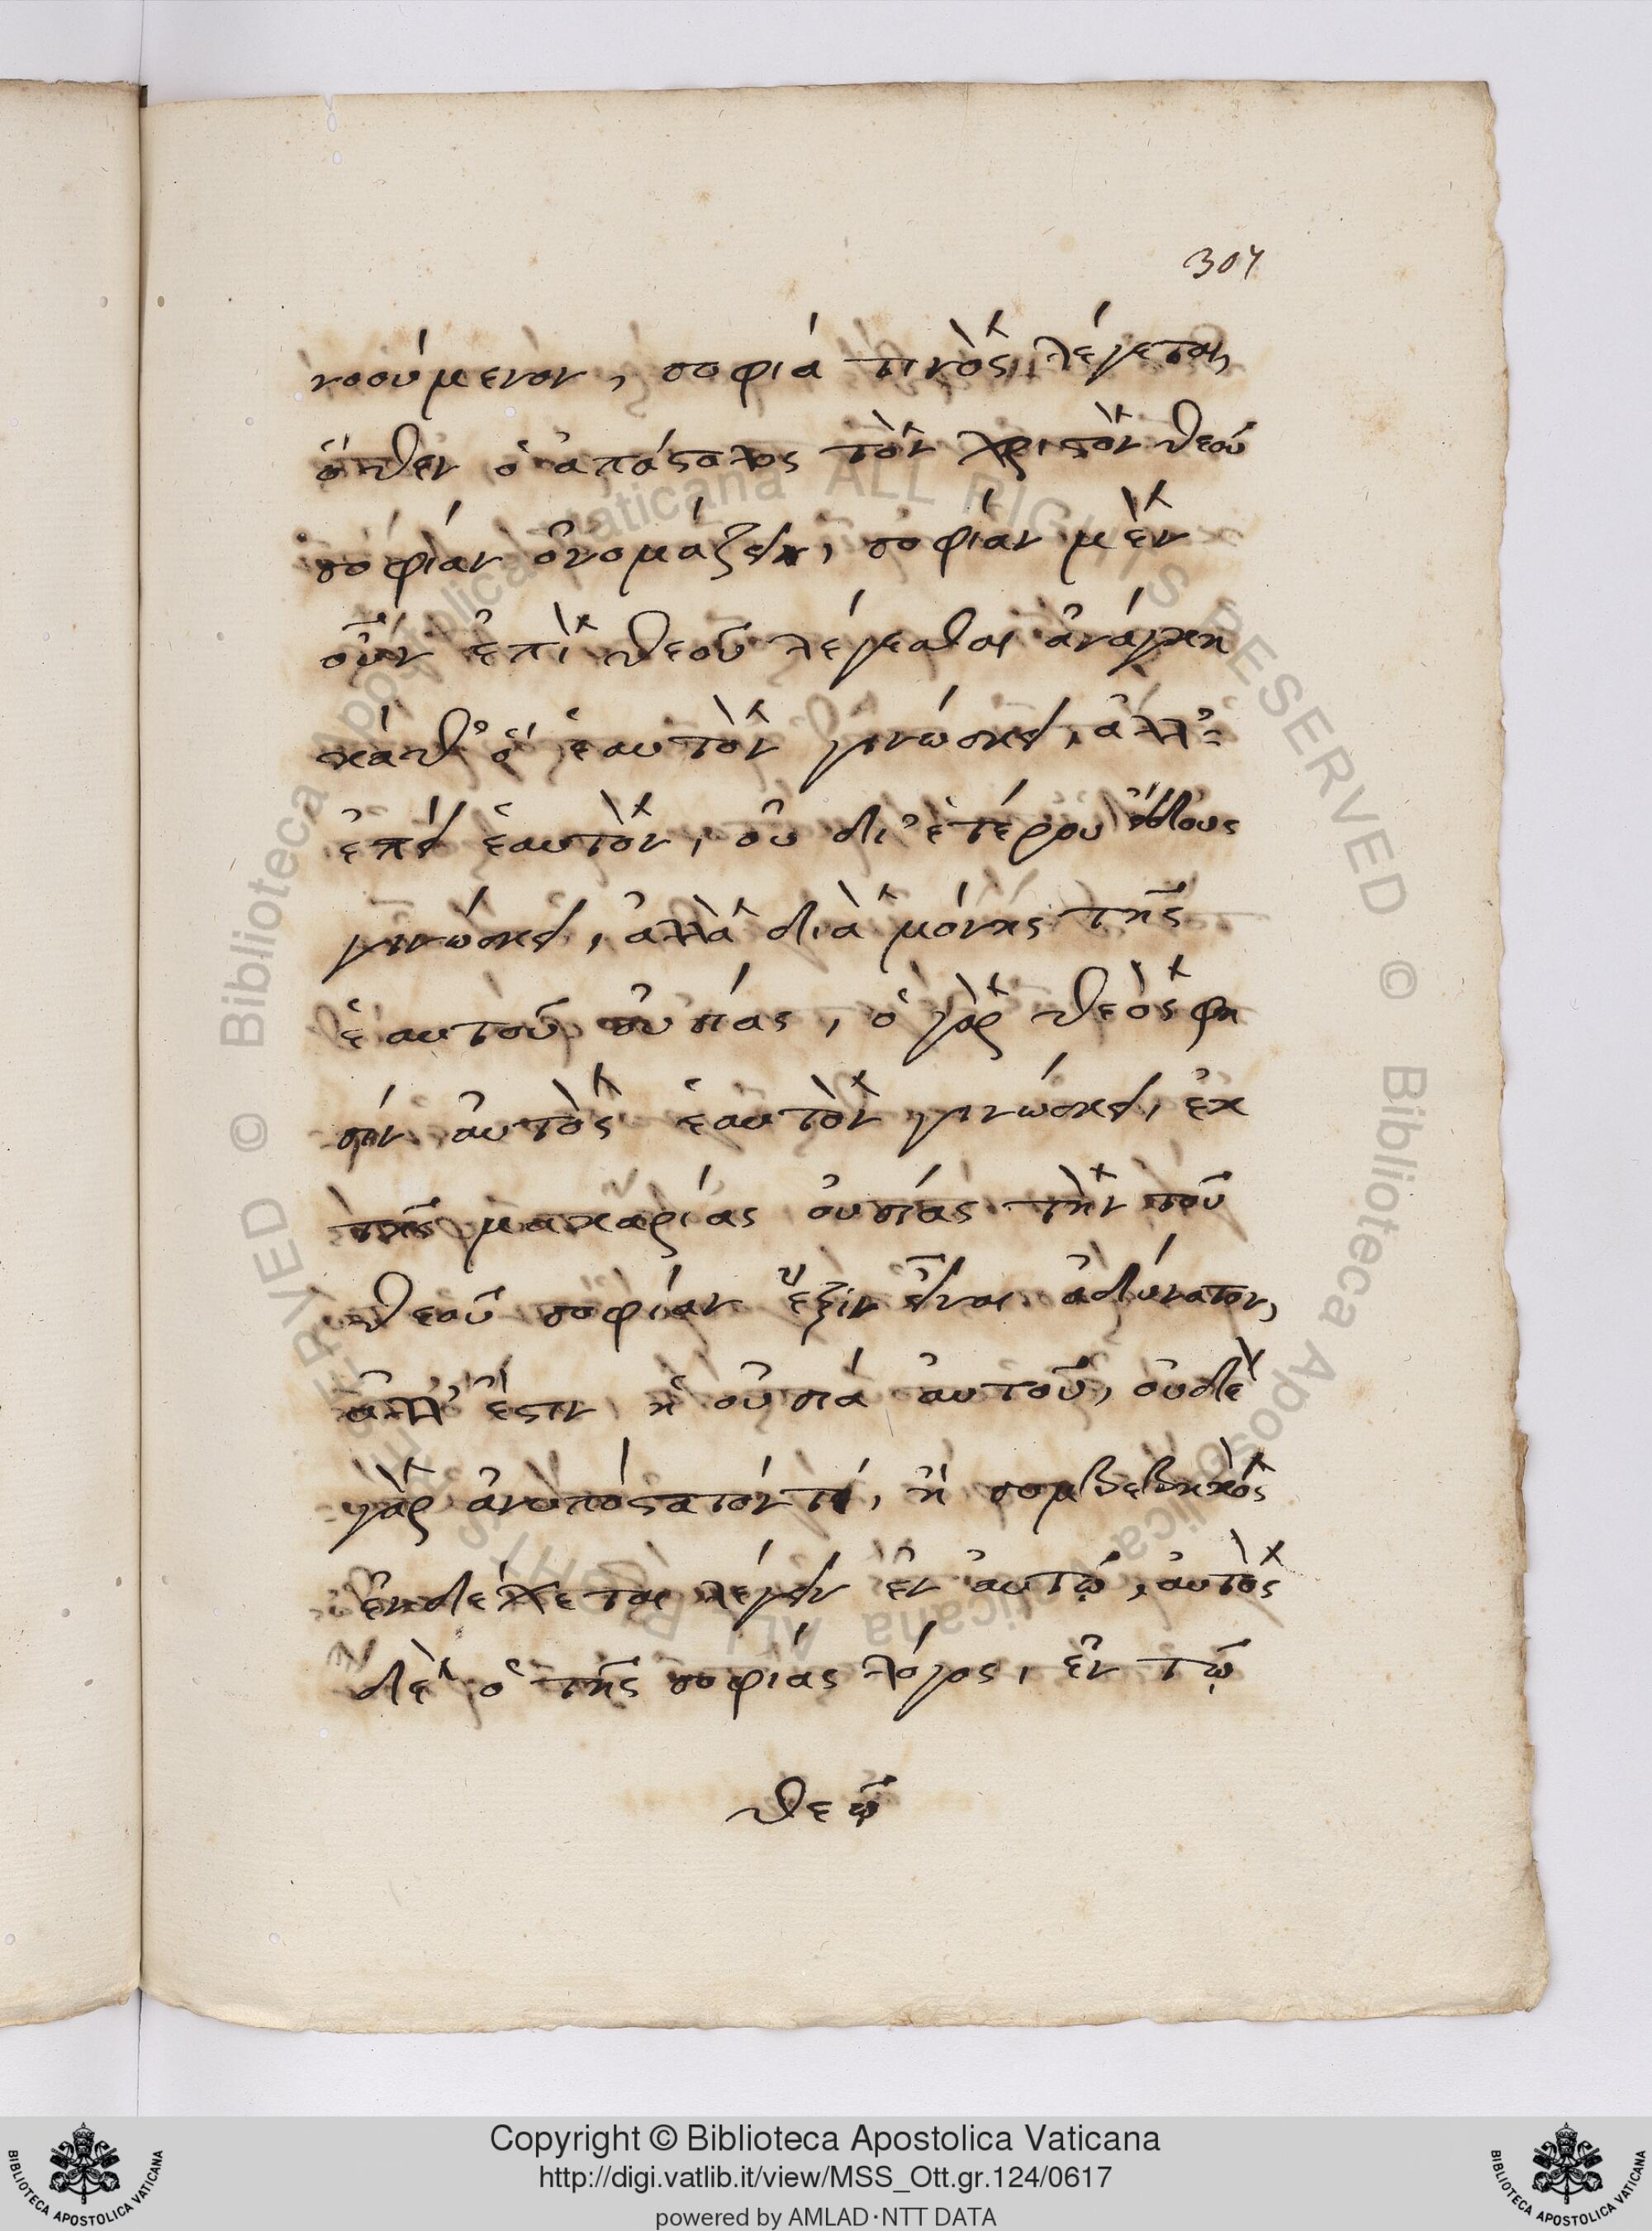 304
νοούμενον, σοφία τινὸς λέγεται,
ὅθεν ὁ ἀπόστολος τὸν χριστὸν θεοῦ
σοφίαν ὀνομάζει, σοφίαν μὲν
οὖν ἐπὶ θεοῦ λέγεσθαι ἀνάγκη
κάθ' ὅ ἑαυτὸν γινώσκει, ἀλλ'
ἐπεὶ ἑαυτὸν, οὐ δι' ἑτέρου εἴδους
γινώσκει, ἀλλὰ διὰ μόνης τῆς
ἑαυτοῦ οὐσίας, ὁ γὰρ θεὸς φη
σὶν αὐτὸς ἑαυτὸν γινώσκει, ἐκ
τῆς μακαρίας οὐσίας τὴν τοῦ
θεοῦ σοφίαν ἕξιν εἶναι ἀδύνατον,
ἀλλ' ἔστιν ἡ οὐσία αὐτοῦ, οὐδὲ
γὰρ ἀνυπόστατόν τι, ἢ συμβεβηκὸς
ἐνδέχεται λέγειν ἐν αὐτῷ, αὐτὸς
δὲ ὁ τῆς σοφίας λόγος, ἐν τῷ
θεῷ
© Biblioteca Apostolica Vaticana ALL RIGHTS RESERVED © Biblioteca Apostolica Vaticana ALL RIGHTS RESERVED
Copyright © Biblioteca Apostolica Vaticana
http://digi.vatlib.it/view/MSS_Ott.gr.124/0617
powered by AMLAD·NTT DATA
BIBLIOTECA APOSTOLICA VATICANA
BIBLIOTECA APOSTOLICA VATICANA